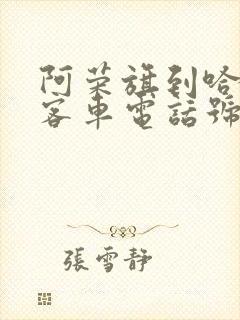 阿荣旗到哈
客車電話號
張雪静